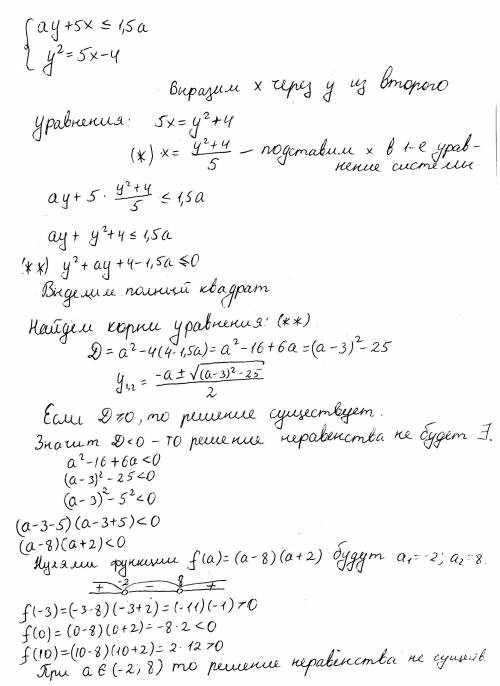 { ay + 5x ≤ 1,5a
y² = 5x - 4
Выразим x через y из второго
уравнения: 5x = y² + 4
(*) x = (y² + 4)/5 — подставим x в 1-е урав-
нение системы
ay + 5 · (y² + 4)/5 ≤ 1,5a
ay + y² + 4 ≤ 1,5a
**) y² + ay + 4 - 1,5a ≤ 0
Выделим полный квадрат
Найдём корни уравнения: (**)
D = a² - 4(4 - 1,5a) = a² - 16 + 6a = (a - 3)² - 25
y₁,₂ = (-a ± √((a - 3)² - 25))/2
Если D ≥ 0, то решение существует.
Значит D < 0 - то решение неравенства не будет ∃.
a² - 16 + 6a < 0
(a - 3)² - 25 < 0
(a - 3)² - 5² < 0
(a - 3 - 5)(a - 3 + 5) < 0
(a - 8)(a + 2) < 0
Нулями функции f(a) = (a - 8)(a + 2) будут a₁ = -2; a₂ = 8.
+ -2 - 8 +
f(-3) = (-3 - 8)(-3 + 2) = (-11)(-1) > 0
f(0) = (0 - 8)(0 + 2) = -8 · 2 < 0
f(10) = (10 - 8)(10 + 2) = 2 · 12 > 0
При a ∈ (-2; 8) то решение неравенства не существ.